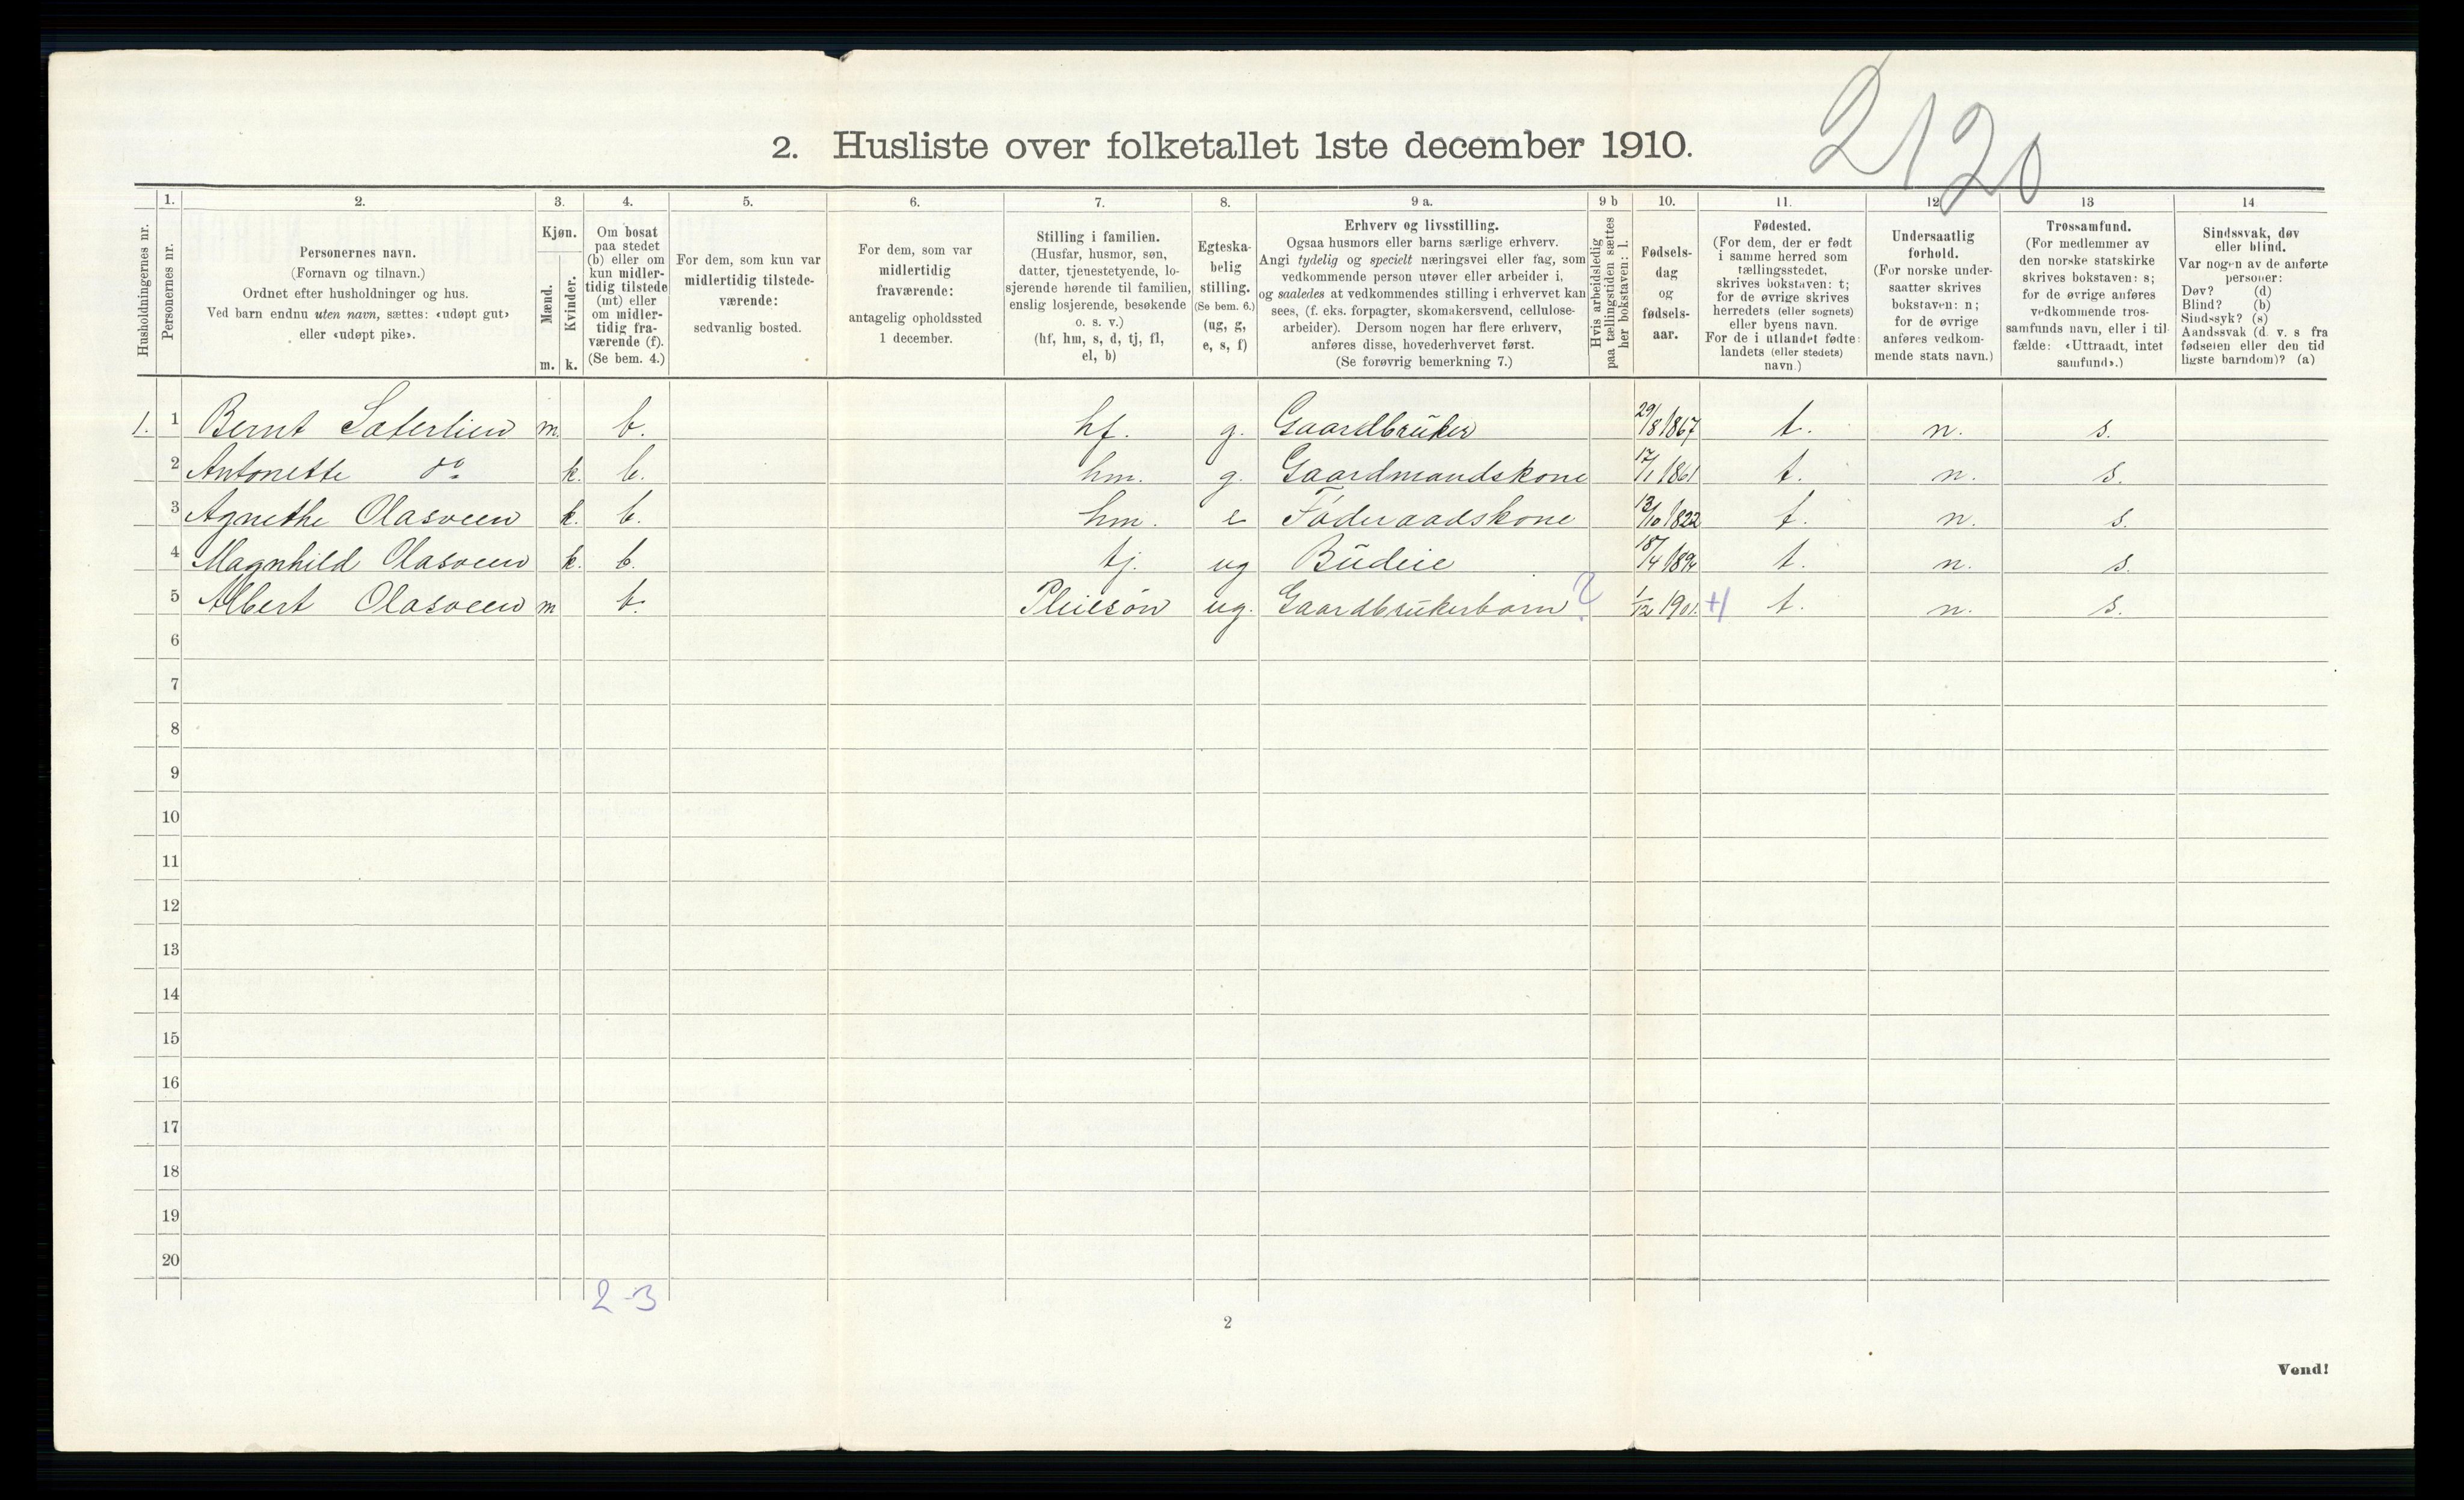 2120
2. Husliste over folketallet 1ste december 1910.
Husholdningernes nr.
1. 2. 3. 4. 5. 6. 7. 8. 9 a. 9 b 10. 11. 12 13 14
Personernes nr.
Personernes navn.
(Fornavn og tilnavn.)
Ordnet efter husholdninger og hus.
Ved barn endnu uten navn, sættes: «udøpt gut»
eller «udøpt pike».
Kjøn.
Mænd.
Kvinder.
m. k.
Om bosat
paa stedet
(b) eller om
kun midler-
tidig tilstede
(mt) eller
om midler-
tidig fra-
værende (f).
(Se bem. 4.)
For dem, som kun var
midlertidig tilstede-
værende:
sedvanlig bosted.
For dem, som var
midlertidig
fraværende:
antagelig opholdssted
1 december.
Stilling i familien.
(Husfar, husmor, søn,
datter, tjenestetyende, lo-
sjerende hørende til familien,
enslig losjerende, besøkende
o. s. v.)
(hf, hm, s, d, tj, fl,
el, b)
Egteska-
belig
stilling.
(Se bem. 6.)
(ug, g,
e, s, f)
Erhverv og livsstilling.
Ogsaa husmors eller barns særlige erhverv.
Angi tydelig og specielt næringsvei eller fag, som
vedkommende person utøver eller arbeider i,
og saaledes at vedkommendes stilling i erhvervet kan
sees, (f. eks. forpagter, skomakersvend, cellulose-
arbeider). Dersom nogen har flere erhverv,
anføres disse, hovederhvervet først.
(Se forøvrig bemerkning 7.)
Hvis arbeidsledig
paa tællingstiden sættes
her bokstaven: l.
Fødsels-
dag
og
fødsels-
aar.
Fødested.
(For dem, der er født
i samme herred som
tællingsstedet,
skrives bokstaven: t;
for de øvrige skrives
herredets (eller sognets)
eller byens navn.
For de i utlandet fødte:
landets (eller stedets)
navn.)
Undersaatlig
forhold.
(For norske under-
saatter skrives
bokstaven: n;
for de øvrige
anføres vedkom-
mende stats navn.)
Trossamfund.
(For medlemmer av
den norske statskirke
skrives bokstaven: s;
for de øvrige anføres
vedkommende tros-
samfunds navn, eller i til-
fælde: «Uttraadt, intet
samfund».)
Sindssvak, døv
eller blind.
Var nogen av de anførte
personer:
Døv? (d)
Blind? (b)
Sindssyk? (s)
Aandssvak (d. v. s. fra
fødselen eller den tid-
ligste barndom)? (a)
1. 1 Bernt Sæterlien m. b. hf. g. Gaardbruker 29/8 1867 t. n. s.
2 Antonette do k. b. hm. g. Gaardmandskone 17/1 1861 t. n. s.
3 Agnethe Olasveen k. b. hm. e Føderaadskone 12/10 1822 t. n. s.
4 Magnhild Olasveen k. b. tj. ug Budeie 18/4 1894 t. n. s.
5 Albert Olasveen m b. Pleiesøn ug. Gaardbrukerbarn ? 1/12 1901. +1 t. n. s.
6
7
8
9
10
11
12
13
14
15
16
17
18
19
20
2-3
2
Vend!